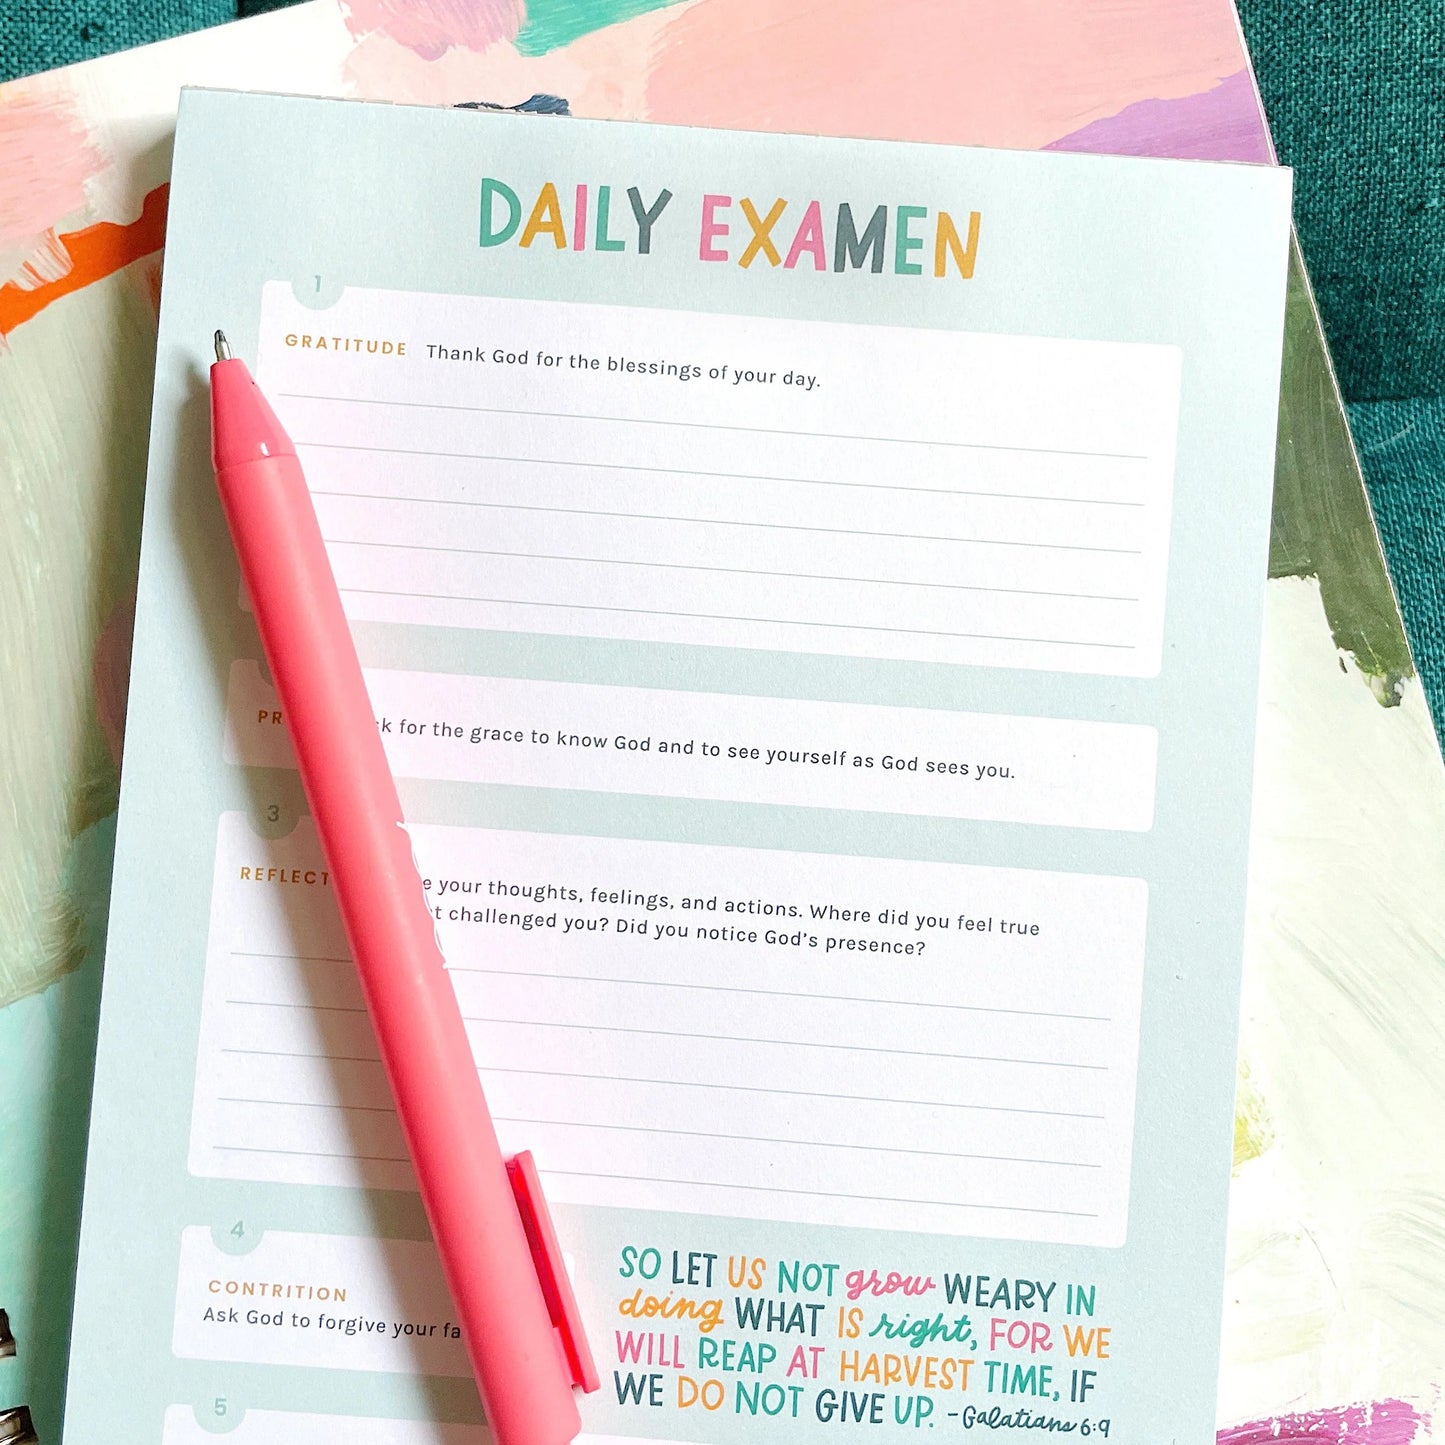 DAILY EXAMEN
1
GRATITUDE Thank God for the blessings of your day.
for the grace to know God and to see yourself as God sees you.
3
REFLECT
your thoughts, feelings, and actions. Where did you feel true
challenged you? Did you notice God's presence?
4
CONTRITION
Ask God to forgive your
5
SO LET US NOT grow WEARY IN
doing WHAT IS right, FOR WE
WILL REAP AT HARVEST TIME, IF
WE DO NOT GIVE UP. -Galatians 6:9